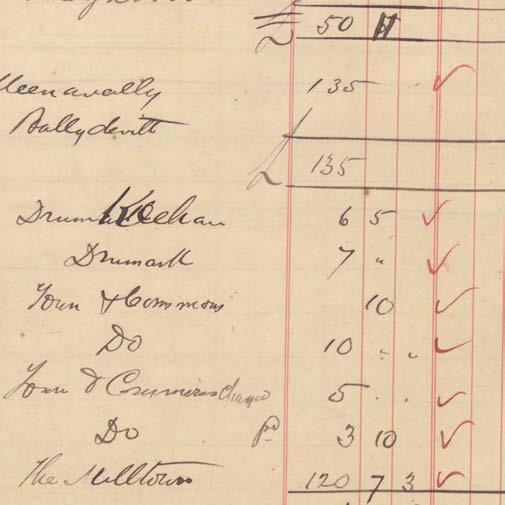 £ 50 11
135
Ballydevitt
£ 135
6 5
Drumark 7 "
Town & Commons 10
Do 10 " "
Town & Commons 5 . .
Do pd 3 10
The Milltown 120 7 3